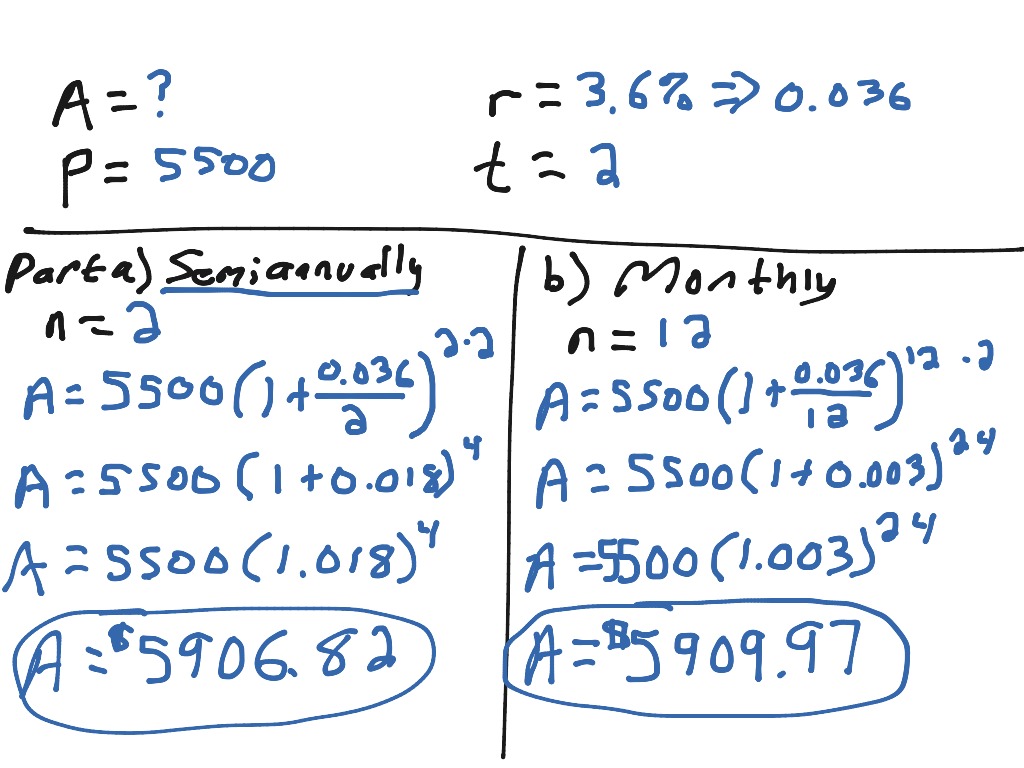 A = ?
r = 3.6% ⇒ 0.036
P = 5500
t = 2
Part a) Semiannually
n = 2
A = 5500(1 + 0.036/2)^2·2
A = 5500(1 + 0.018)^4
A = 5500(1.018)^4
A = $5906.82
b) Monthly
n = 12
A = 5500(1 + 0.036/12)^12·2
A = 5500(1 + 0.003)^24
A = 5500(1.003)^24
A = $5909.97